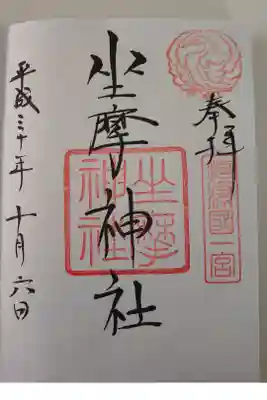 奉拝
摂津國一宮
坐摩神社
坐摩神社
平成三十年 十月六日